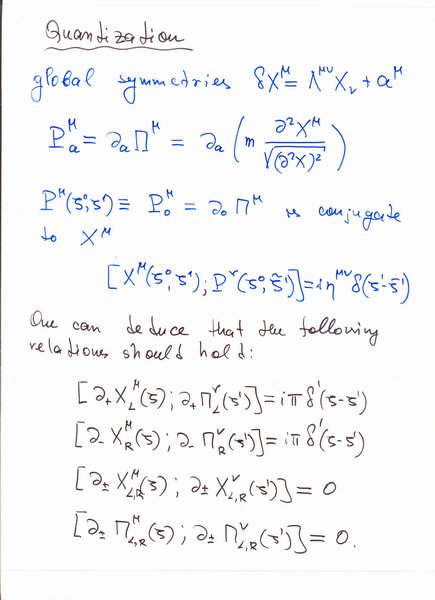 Quantization
global symmetries δX^μ = Λ^{μν} X_ν + a^μ
P^μ_a = ∂_a Π^μ = ∂_a ( m ∂²X^μ / √(∂²X)² )
P^μ(ζ⁰,ζ¹) ≡ P^μ_0 = ∂_0 Π^μ is conjugate
to X^μ
[X^μ(ζ⁰,ζ¹); P^ν(ζ⁰,ζ̃¹)] = iη^{μν} δ(ζ¹-ζ̃¹)
One can deduce that the following
relations should hold:
[∂₊X^μ_L(ζ); ∂₊Π^ν_L(ζ')] = iπδ'(ζ-ζ')
[∂₋X^μ_R(ζ); ∂₋Π^ν_R(ζ')] = iπδ'(ζ-ζ')
[∂±X^μ_{L,R}(ζ); ∂±X^ν_{L,R}(ζ')] = 0
[∂±Π^μ_{L,R}(ζ); ∂±Π^ν_{L,R}(ζ')] = 0.